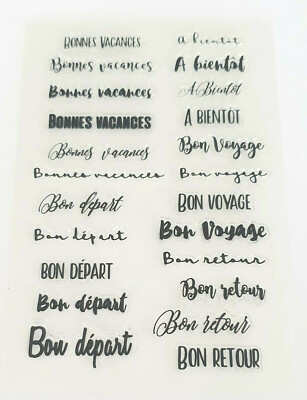 BONNES VACANCES
Bonnes vacances
Bonnes vacances
BONNES VACANCES
Bonnes vacances
Bonnes vacances
Bon départ
Bon départ
BON DÉPART
Bon départ
Bon départ
A bientôt
A bientôt
A Bientôt
A BIENTÔT
Bon Voyage
Bon voyage
BON VOYAGE
Bon Voyage
Bon retour
Bon retour
Bon retour
BON RETOUR